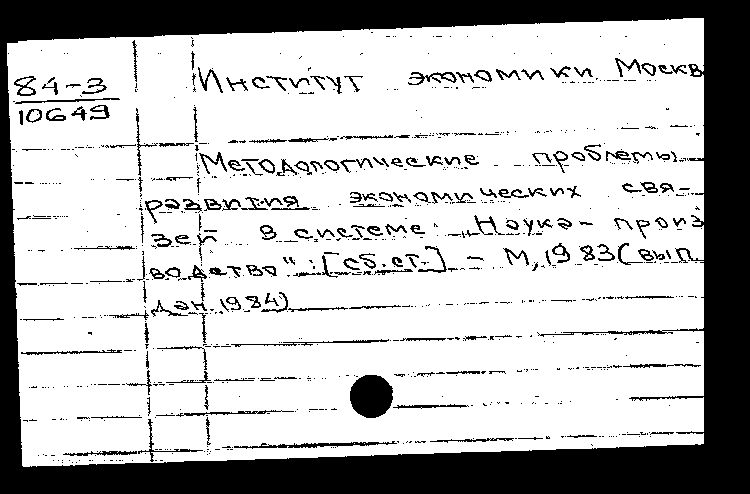 84-3
10649
Институт экономики. Москв
Методологические проблемы
развития экономических свя-
зей в системе „Наука - произ
водство" : [сб.ст.] - М, 1983 (вып.
дан. 1984)